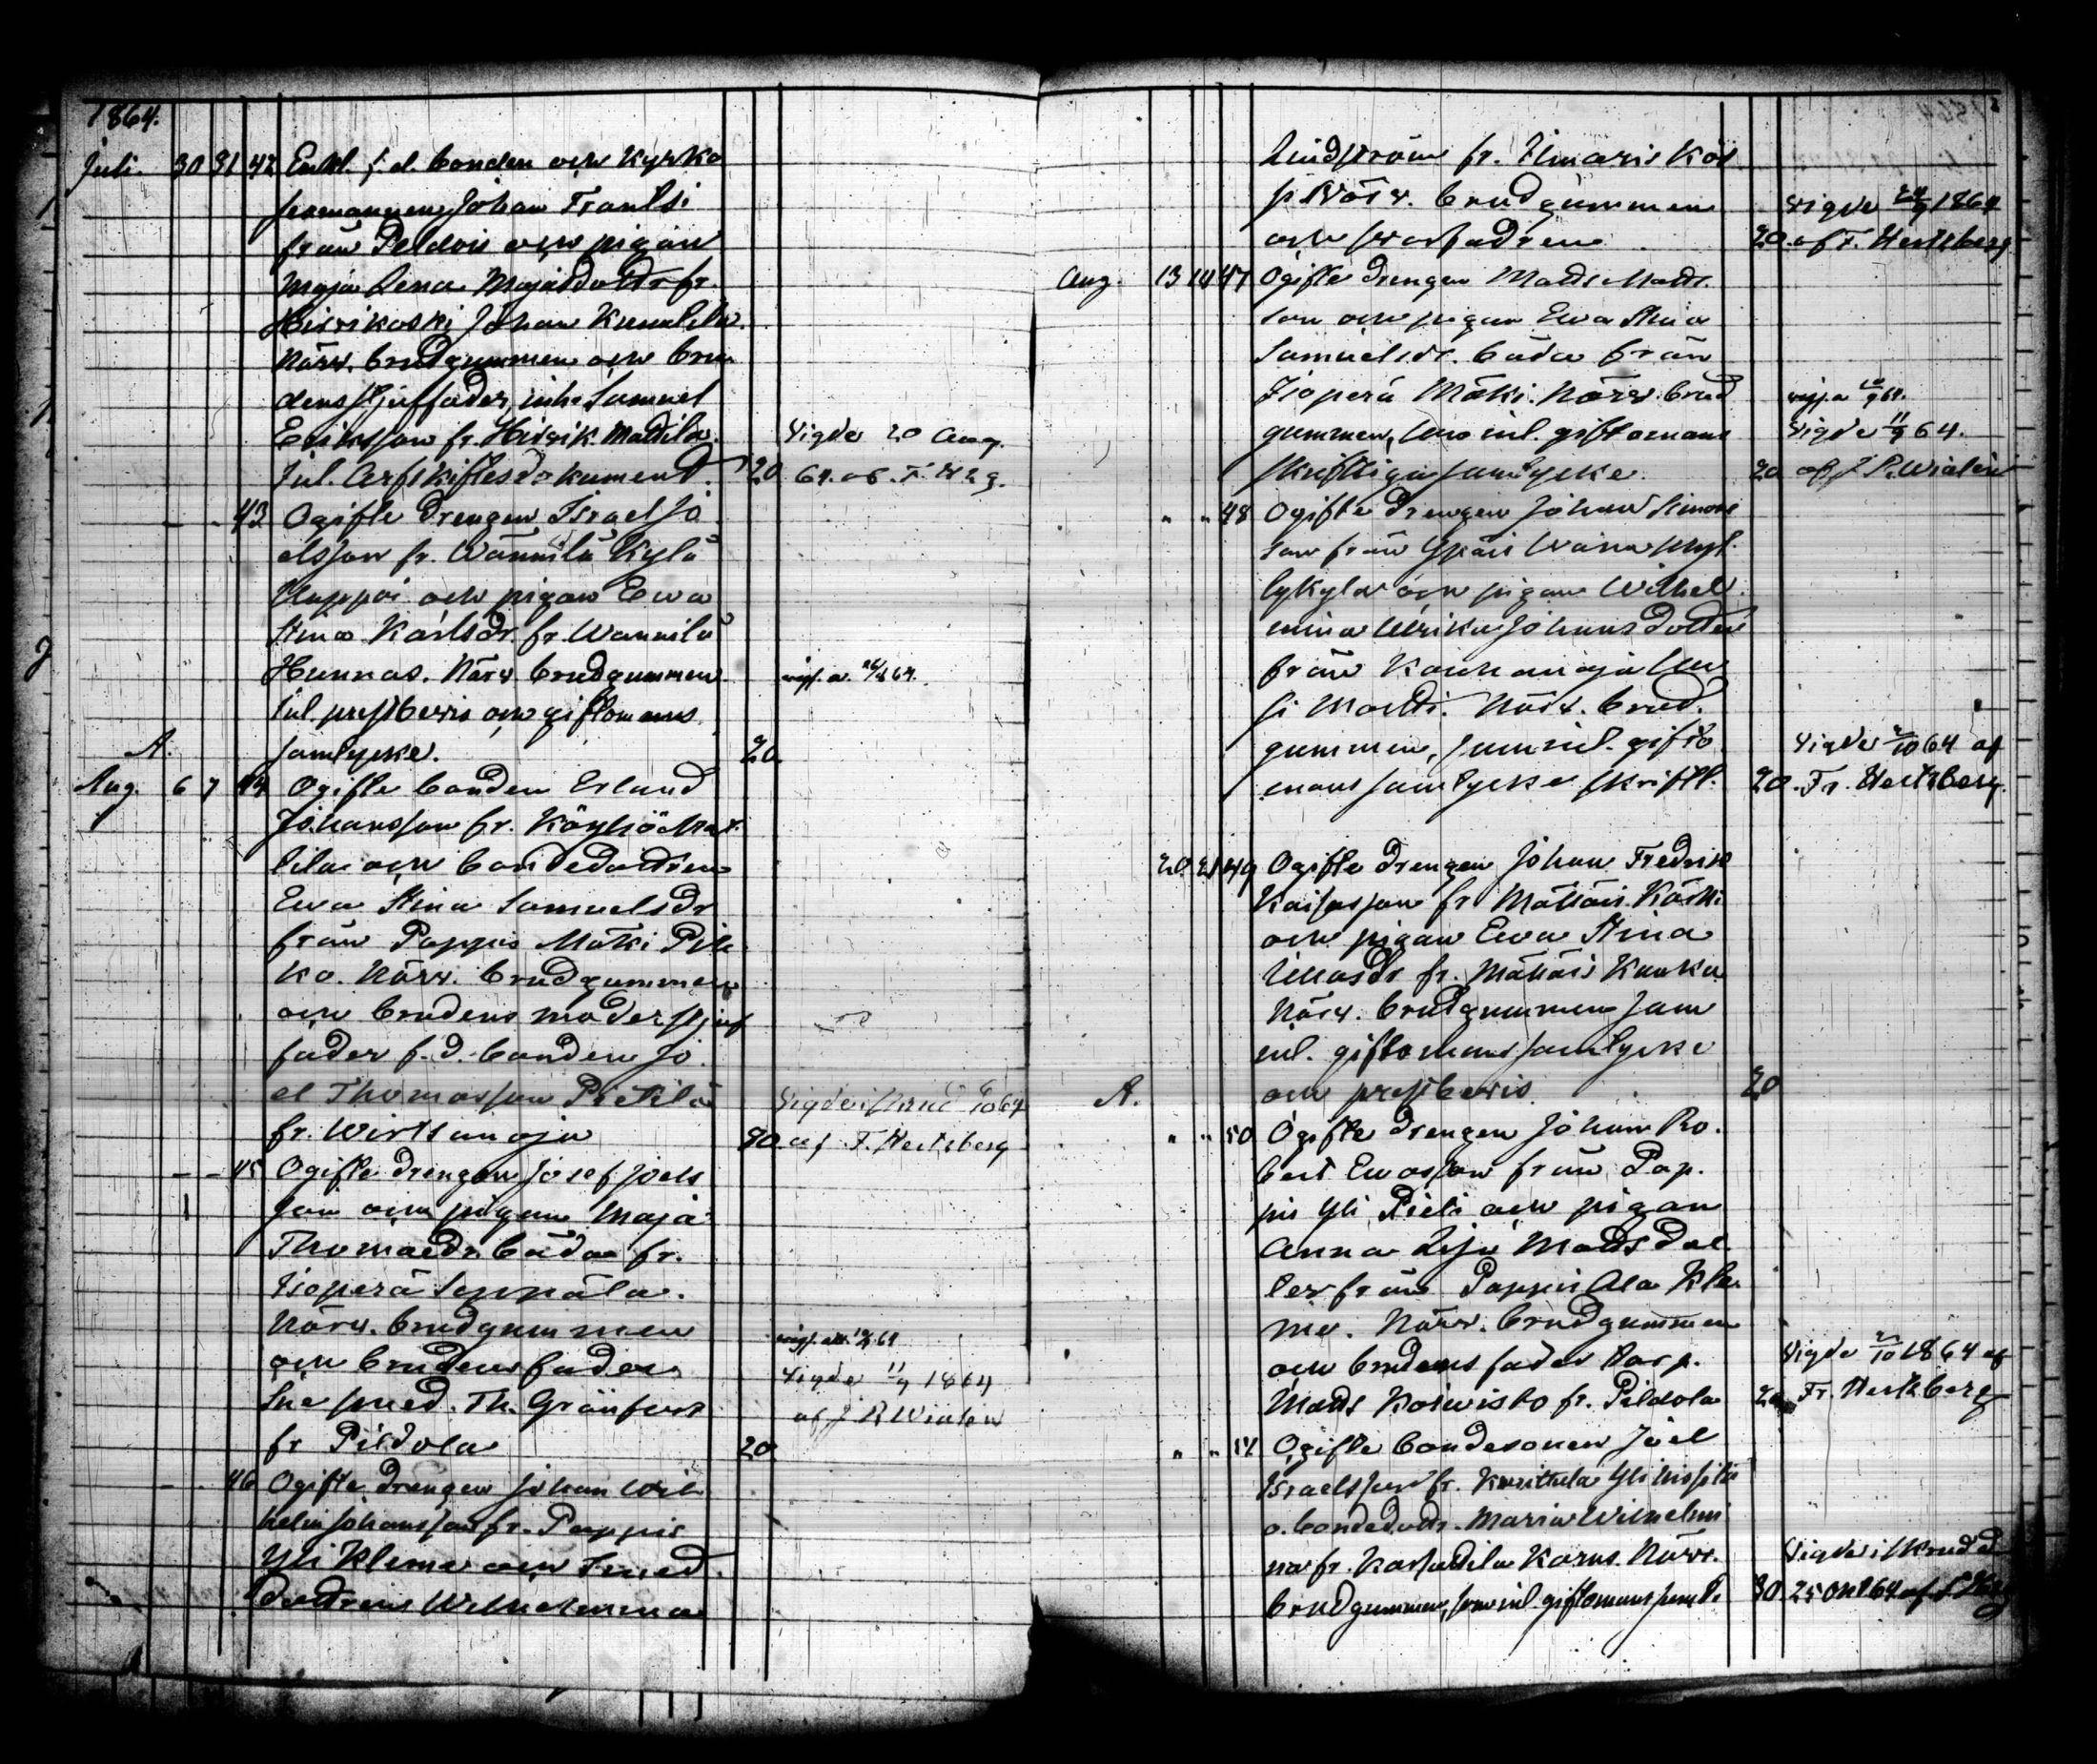 1864.
Juli. 30 31 42 Enkl. f. d. bonden och kyrko
Johan Frantsi
från Peldois och pigan
Maja Lena Majasdottr fr.
Hirvikoski Johan Kunnlila.
Närv. brudgummen och bru
dens stjuffader, inh. Samuel
Eriksson fr. Hirvik. Mattila. Vigde 20 Aug.
Inl. Arfskiftesdokument. 20 64. af F. Hzg.
- - 43 Ogifte drengen Israel Jo
elsson fr. Wännilä Kylä
Uuppoi och pigan Ewa
Stina Karlsdr. fr. Wännilä
Hunnas. Närv brudgummen
Inl. prestbevis och giftomans
A. samtycke. 20
Aug. 6 7 44 Ogifte bonden Erland
Johansson fr. Köyliö Mat
tila och bondedottren
Ewa Stina Samuelsdr
från Pappis Mäki Pil
ko. Närv. brudgummen
och brudens moders stjuf
fader f. d. bonden Jo
el Thomasson Pietilä
fr. Wirtsanoja 80 af F. Hertzberg
- - 45 Ogifte drengen Josef Joels
son och pigan Maja
Thomasdr. båda fr.
Isoperä Seppälä.
Närv. brudgummen
och brudens fader Vigde 11/9 1864
Th. Grönfors af J R Wialén
fr Pildola 20
- - 46 Ogifte drengen Johan Wil
helm Johansson fr. Pappis
Yli Klemo och smed
dottren Wilhelmina
Lindström fr. Ilmaris Kös
si. Närv. brudgummen Vigde 1864
och 20. af F. Hertzberg
Aug. 13 14 47 Ogifte drengen Matts Matts
son och pigan Ewa Stina
Samuelsdr. båda från
Isoperä Mäki. Närv. brud
gummen, som inl. giftomans Vigde 11/9 64.
skriftliga samtycke. 20 af J R. Wialén
" " 48 Ogifte drengen Johan Simons
son från Ypäis
lykylä och pigan Wilhel
mina Ulrika Johansdotter
från Kauhanoja Uu
si Martti. Närv. brud
gummen, som inl. gifto Vigde 2/10 64 af
mans samtycke skriftl. 20. Fr. Hertzberg.
20 21 49 Ogifte drengen Johan Fredrik
Kaisasson fr Mälläis Kärki
och pigan Ewa Stina
Ullasdr fr. Mälläis Kauka
Närv. brudgummen som
inl. giftomans samtycke
A. och prestbevis. 20
" " 50 Ogifte drengen Johan Ro
bert Ewasson från Pap
pis Yli Pieti och pigan
Anna Lisa Mattsdot
ter från Pappis Ala Kle
mo. Närv. brudgummen
och brudens fader torp. Vigde 2/10 1864 af
Matts Koivisto fr. Pildola 20 Fr. Hertzberg
" " 51 Ogifte bondesonen Joel
Israelsson fr. Kuittula Yli Nissilä
o. bondedottr. Maria Wilhelmi
na fr. Karhattila Karus. Närv.
brudgummen, som inl. giftomans samt. 30. 25 Okt 64 af F. Hzg